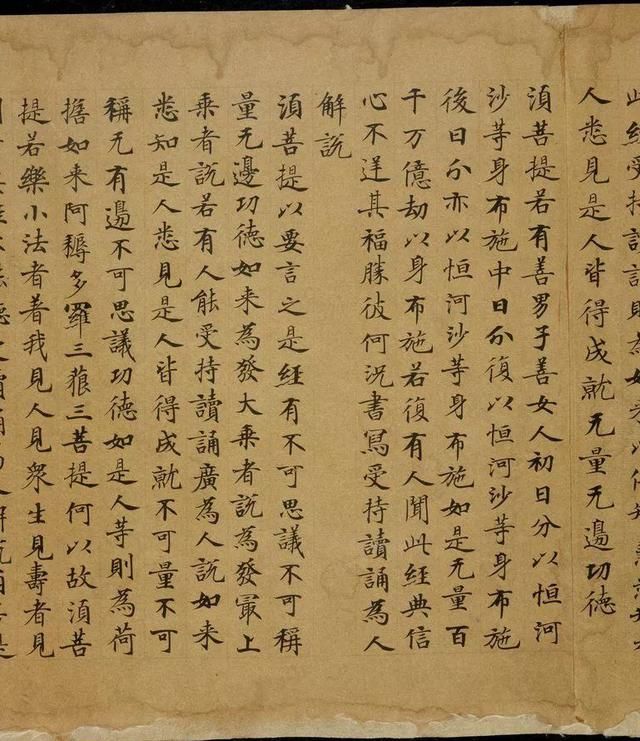 此經受持讀誦則為如来以佛智
人悉見是人皆得成就无量无邊功德
湏菩提若有善男子善女人初日分以恒河
沙等身布施中日分復以恒河沙等身布施
後日分亦以恒河沙等身布施如是无量百
千万億劫以身布施若復有人聞此經典信
心不逆其福勝彼何況書寫受持讀誦為人
解說
湏菩提以要言之是經有不可思議不可稱
量无邊功德如来為發大乗者說為發冣上
乗者說若有人能受持讀誦廣為人說如来
悉知是人悉見是人皆得成就不可量不可
稱无有邊不可思議功德如是人等則為荷
擔如来阿耨多羅三藐三菩提何以故湏菩
提若樂小法者著我見人見衆生見壽者見